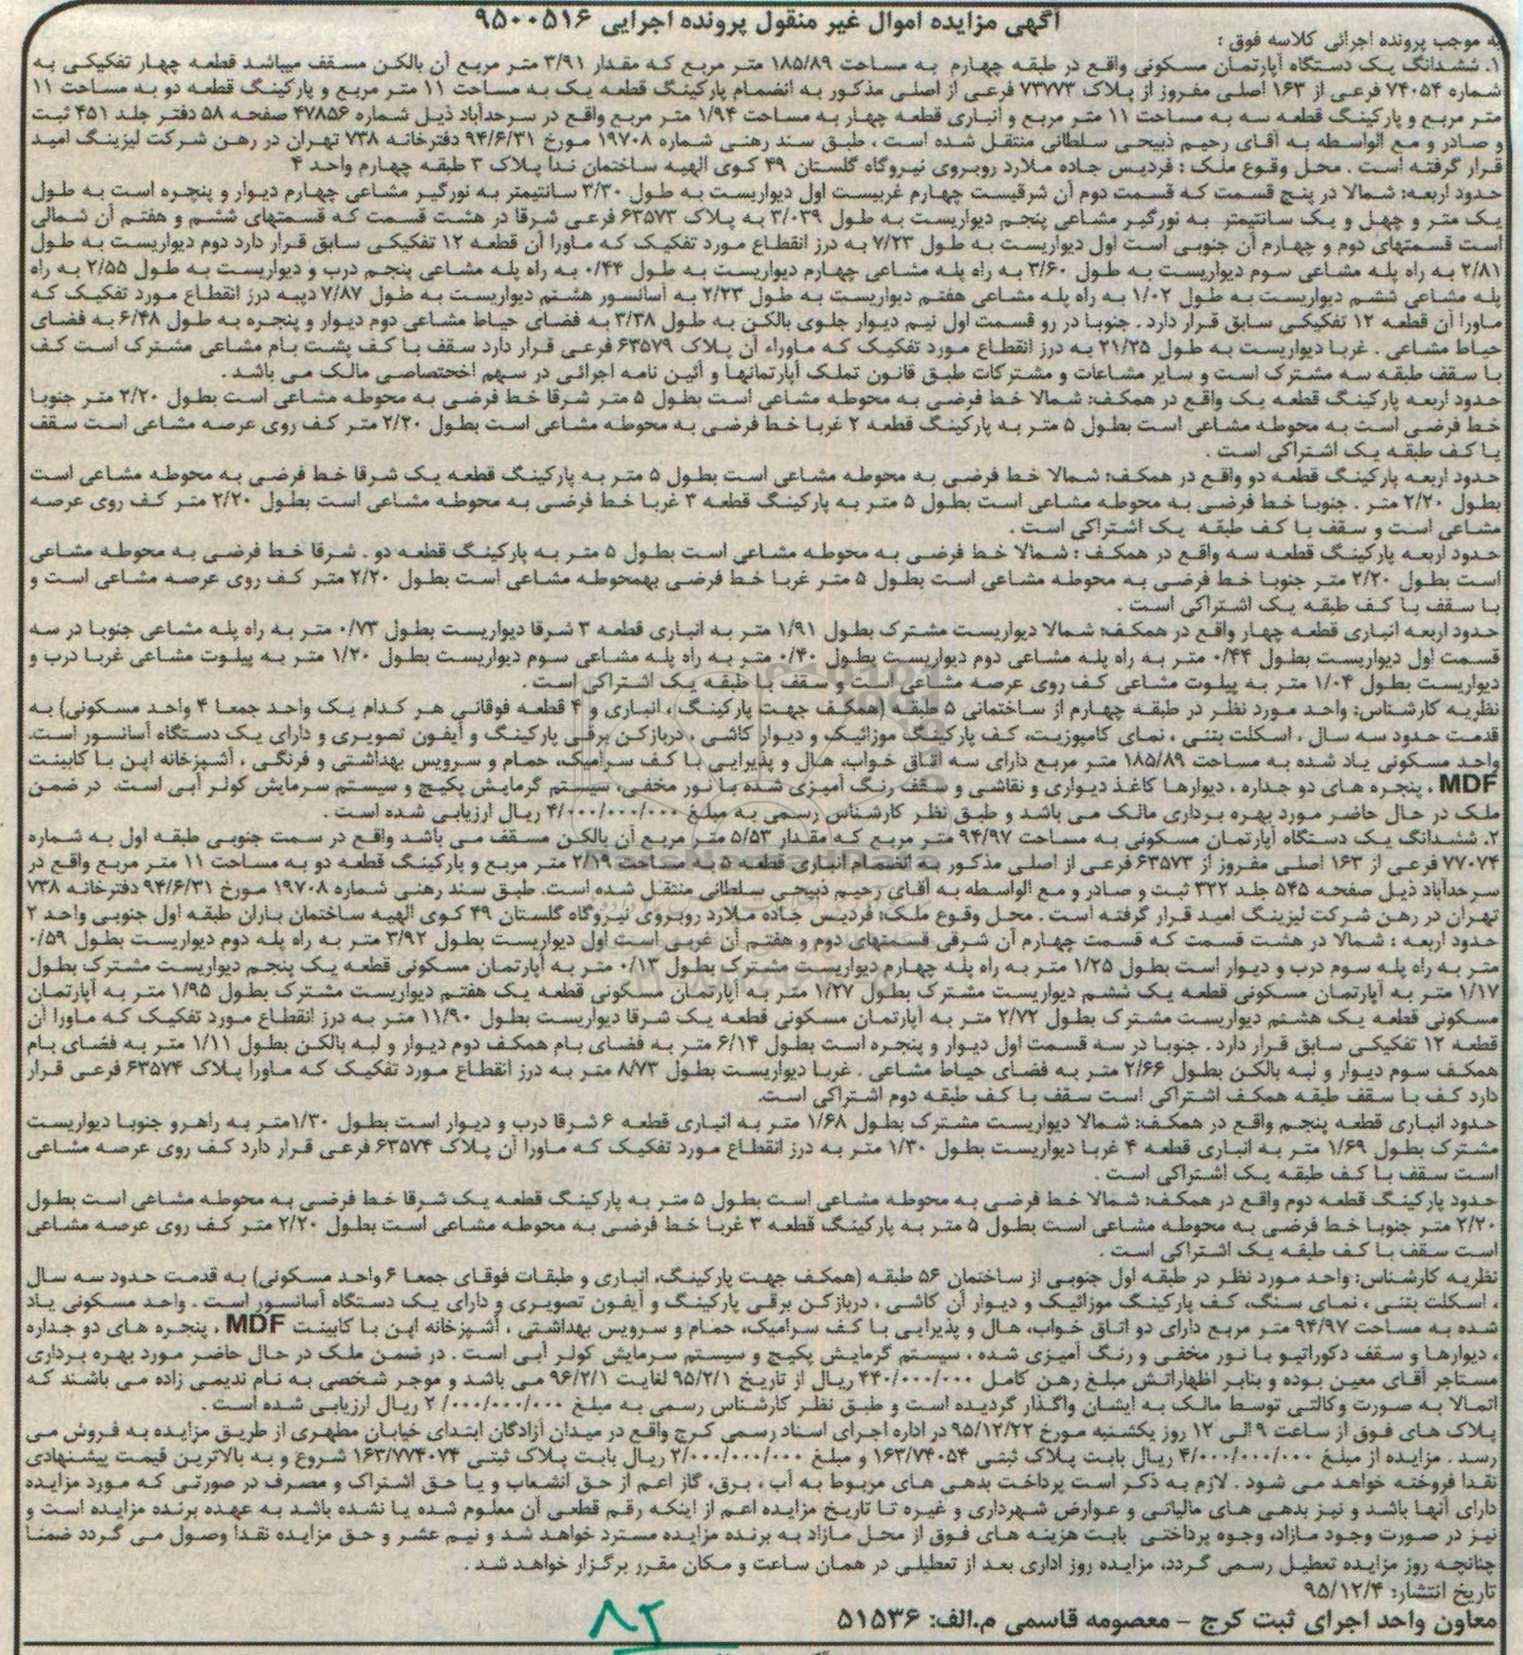 آگهی مزایده اموال غیر منقول پرونده اجرایی ۹۵۰۰۵۱۶
به موجب پرونده اجرائی کلاسه فوق :
۱. ششدانگ یک دستگاه آپارتمان مسکونی واقع در طبقه چهارم به مساحت ۱۸۵/۸۹ متر مربع که مقدار ۳/۹۱ متر مربع آن بالکن مسقف میباشد قطعه چهار تفکیکی به
شماره ۷۴۰۵۴ فرعی از ۱۶۳ اصلی مفروز از پلاک ۷۳۷۷۳ فرعی از اصلی مذکور به انضمام پارکینگ قطعه یک به مساحت ۱۱ متر مربع و پارکینگ قطعه دو به مساحت ۱۱
متر مربع و پارکینگ قطعه سه به مساحت ۱۱ متر مربع و انباری قطعه چهار به مساحت ۱/۹۴ متر مربع واقع در سرحدآباد ذیل شماره ۴۷۸۵۶ صفحه ۵۸ دفتر جلد ۴۵۱ ثبت
و صادر و مع الواسطه به آقای رحیم ذبیحی سلطانی منتقل شده است ، طبق سند رهنی شماره ۱۹۷۰۸ مورخ ۹۴/۶/۳۱ دفترخانه ۷۳۸ تهران در رهن شرکت لیزینگ امید
قرار گرفته است . محل وقوع ملک : فردیس جاده ملارد روبروی نیروگاه گلستان ۴۹ کوی الهیه ساختمان ندا پلاک ۳ طبقه چهارم واحد ۴
حدود اربعه: شمالا در پنج قسمت که قسمت دوم آن شرقیست چهارم غربیست اول دیواریست به طول ۳/۳۰ سانتیمتر به نورگیر مشاعی چهارم دیوار و پنجره است به طول
یک متر و چهل و یک سانتیمتر به نورگیر مشاعی پنجم دیواریست به طول ۳/۰۳۹ به پلاک ۶۳۵۷۳ فرعی شرقا در هشت قسمت که قسمتهای ششم و هفتم آن شمالی
است قسمتهای دوم و چهارم آن جنوبی است اول دیواریست به طول ۷/۲۳ به درز انقطاع مورد تفکیک که ماورا آن قطعه ۱۲ تفکیکی سابق قرار دارد دوم دیواریست به طول
۲/۸۱ به راه پله مشاعی سوم دیواریست به طول ۳/۶۰ به راه پله مشاعی چهارم دیواریست به طول ۰/۴۴ به راه پله مشاعی پنجم درب و دیواریست به طول ۲/۵۵ به راه
پله مشاعی ششم دیواریست به طول ۱/۰۲ به راه پله مشاعی هفتم دیواریست به طول ۲/۲۳ به آسانسور هشتم دیواریست به طول ۷/۸۷ دیبه درز انقطاع مورد تفکیک که
ماورا آن قطعه ۱۲ تفکیکی سابق قرار دارد . جنوبا در رو قسمت اول نیم دیوار جلوی بالکن به طول ۳/۳۸ به فضای حیاط مشاعی دوم دیوار و پنجره به طول ۶/۴۸ به فضای
حیاط مشاعی . غربا دیواریست به طول ۲۱/۲۵ به درز انقطاع مورد تفکیک که ماوراء آن پلاک ۶۳۵۷۹ فرعی قرار دارد سقف با کف پشت بام مشاعی مشترک است کف
با سقف طبقه سه مشترک است و سایر مشاعات و مشترکات طبق قانون تملک آپارتمانها و آئین نامه اجرائی در سهم اختصاصی مالک می باشد .
حدود اربعه پارکینگ قطعه یک واقع در همکف: شمالا خط فرضی به محوطه مشاعی است بطول ۵ متر شرقا خط فرضی به محوطه مشاعی است بطول ۲/۲۰ متر جنوبا
خط فرضی است به محوطه مشاعی است بطول ۵ متر به پارکینگ قطعه ۲ غربا خط فرضی به محوطه مشاعی است بطول ۲/۲۰ متر کف روی عرصه مشاعی است سقف
با کف طبقه یک اشتراکی است .
حدود اربعه پارکینگ قطعه دو واقع در همکف: شمالا خط فرضی به محوطه مشاعی است بطول ۵ متر به پارکینگ قطعه یک شرقا خط فرضی به محوطه مشاعی است
بطول ۲/۲۰ متر . جنوبا خط فرضی به محوطه مشاعی است بطول ۵ متر به پارکینگ قطعه ۳ غربا خط فرضی به محوطه مشاعی است بطول ۲/۲۰ متر کف روی عرصه
مشاعی است و سقف با کف طبقه یک اشتراکی است .
حدود اربعه پارکینگ قطعه سه واقع در همکف : شمالا خط فرضی به محوطه مشاعی است بطول ۵ متر به پارکینگ قطعه دو . شرقا خط فرضی به محوطه مشاعی
است بطول ۲/۲۰ متر جنوبا خط فرضی به محوطه مشاعی است بطول ۵ متر غربا خط فرضی بهمحوطه مشاعی است بطول ۲/۲۰ متر کف روی عرصه مشاعی است و
با سقف با کف طبقه یک اشتراکی است .
حدود اربعه انباری قطعه چهار واقع در همکف: شمالا دیواریست مشترک بطول ۱/۹۱ متر به انباری قطعه ۳ شرقا دیواریست بطول ۰/۷۳ متر به راه پله مشاعی جنوبا در سه
قسمت اول دیواریست بطول ۰/۴۴ متر به راه پله مشاعی دوم دیواریست بطول ۰/۴۰ متر به راه پله مشاعی سوم دیواریست بطول ۱/۲۰ متر به پیلوت مشاعی غربا درب و
دیواریست بطول ۱/۰۴ متر به پیلوت مشاعی کف روی عرصه مشاعی است و سقف با طبقه یک اشتراکی است .
نظریه کارشناس: واحد مورد نظر در طبقه چهارم از ساختمانی ۵ طبقه (همکف جهت پارکینگ ، انباری و ۴ قطعه فوقانی هر کدام یک واحد جمعا ۴ واحد مسکونی) به
قدمت حدود سه سال ، اسکلت بتنی ، نمای کامپوزیت، کف پارکینگ موزائیک و دیوار کاشی ، دربازکن برقی پارکینگ و آیفون تصویری و دارای یک دستگاه آسانسور است.
واحد مسکونی یاد شده به مساحت ۱۸۵/۸۹ متر مربع دارای سه اتاق خواب، هال و پذیرایی با کف سرامیک، حمام و سرویس بهداشتی و فرنگی ، آشپزخانه اپن با کابینت
MDF ، پنجره های دو جداره ، دیوارها کاغذ دیواری و نقاشی و سقف رنگ آمیزی شده با نور مخفی، سیستم گرمایش پکیج و سیستم سرمایش کولر آبی است. در ضمن
ملک در حال حاضر مورد بهره برداری مالک می باشد و طبق نظر کارشناس رسمی به مبلغ ۴/۰۰۰/۰۰۰/۰۰۰ ریال ارزیابی شده است .
۲. ششدانگ یک دستگاه آپارتمان مسکونی به مساحت ۹۴/۹۷ متر مربع که مقدار ۵/۵۳ متر مربع آن بالکن مسقف می باشد واقع در سمت جنوبی طبقه اول به شماره
۷۷۰۷۴ فرعی از ۱۶۳ اصلی مفروز از ۶۳۵۷۳ فرعی از اصلی مذکور به انضمام انباری قطعه ۵ به مساحت ۲/۱۹ متر مربع و پارکینگ قطعه دو به مساحت ۱۱ متر مربع واقع در
سرحدآباد ذیل صفحه ۵۴۵ جلد ۳۲۲ ثبت و صادر و مع الواسطه به آقای رحیم ذبیحی سلطانی منتقل شده است. طبق سند رهنی شماره ۱۹۷۰۸ مورخ ۹۴/۶/۳۱ دفترخانه ۷۳۸
تهران در رهن شرکت لیزینگ امید قرار گرفته است . محل وقوع ملک: فردیس جاده ملارد روبروی نیروگاه گلستان ۴۹ کوی الهیه ساختمان باران طبقه اول جنوبی واحد ۲
حدود اربعه : شمالا در هشت قسمت که قسمت چهارم آن شرقی قسمتهای دوم و هفتم آن غربی است اول دیواریست بطول ۳/۹۲ متر به راه پله دوم دیواریست بطول ۰/۵۹
متر به راه پله سوم درب و دیوار است بطول ۱/۲۵ متر به راه پله چهارم دیواریست مشترک بطول ۰/۱۳ متر به آپارتمان مسکونی قطعه یک پنجم دیواریست مشترک بطول
۱/۱۷ متر به آپارتمان مسکونی قطعه یک ششم دیواریست مشترک بطول ۱/۲۷ متر به آپارتمان مسکونی قطعه یک هفتم دیواریست مشترک بطول ۱/۹۵ متر به آپارتمان
مسکونی قطعه یک هشتم دیواریست مشترک بطول ۲/۷۲ متر به آپارتمان مسکونی قطعه یک شرقا دیواریست بطول ۱۱/۹۰ متر به درز انقطاع مورد تفکیک که ماورا آن
قطعه ۱۲ تفکیکی سابق قرار دارد . جنوبا در سه قسمت اول دیوار و پنجره است بطول ۶/۱۴ متر به فضای بام همکف دوم دیوار و لبه بالکن بطول ۱/۱۱ متر به فضای بام
همکف سوم دیوار و لبه بالکن بطول ۲/۶۶ متر به فضای حیاط مشاعی . غربا دیواریست بطول ۸/۷۳ متر به درز انقطاع مورد تفکیک که ماورا پلاک ۶۳۵۷۴ فرعی قرار
دارد کف با سقف طبقه همکف اشتراکی است سقف با کف طبقه دوم اشتراکی است.
حدود انباری قطعه پنجم واقع در همکف: شمالا دیواریست مشترک بطول ۱/۶۸ متر به انباری قطعه ۶ شرقا درب و دیوار است بطول ۱/۳۰متر به راهرو جنوبا دیواریست
مشترک بطول ۱/۶۹ متر به انباری قطعه ۴ غربا دیواریست بطول ۱/۳۰ متر به درز انقطاع مورد تفکیک که ماورا آن پلاک ۶۳۵۷۴ فرعی قرار دارد کف روی عرصه مشاعی
است سقف با کف طبقه یک اشتراکی است .
حدود پارکینگ قطعه دوم واقع در همکف: شمالا خط فرضی به محوطه مشاعی است بطول ۵ متر به پارکینگ قطعه یک شرقا خط فرضی به محوطه مشاعی است بطول
۲/۲۰ متر جنوبا خط فرضی به محوطه مشاعی است بطول ۵ متر به پارکینگ قطعه ۳ غربا خط فرضی به محوطه مشاعی است بطول ۲/۲۰ متر کف روی عرصه مشاعی
است سقف با کف طبقه یک اشتراکی است .
نظریه کارشناس: واحد مورد نظر در طبقه اول جنوبی از ساختمان ۵۶ طبقه (همکف جهت پارکینگ، انباری و طبقات فوقای جمعا ۶ واحد مسکونی) به قدمت حدود سه سال
، اسکلت بتنی ، نمای سنگ، کف پارکینگ موزائیک و دیوار آن کاشی ، دربازکن برقی پارکینگ و آیفون تصویری و دارای یک دستگاه آسانسور است . واحد مسکونی یاد
شده به مساحت ۹۴/۹۷ متر مربع دارای دو اتاق خواب، هال و پذیرایی با کف سرامیک، حمام و سرویس بهداشتی ، آشپزخانه اپن با کابینت MDF ، پنجره های دو جداره
، دیوارها و سقف دکوراتیو با نور مخفی و رنگ آمیزی شده ، سیستم گرمایش پکیج و سیستم سرمایش کولر آبی است . در ضمن ملک در حال حاضر مورد بهره برداری
مستاجر آقای معین بوده و بنابر اظهاراتش مبلغ رهن کامل ۴۴۰/۰۰۰/۰۰۰ ریال از تاریخ ۹۵/۲/۱ لغایت ۹۶/۲/۱ می باشد و موجر شخصی به نام ندیمی زاده می باشند که
اتمالا به صورت وکالتی توسط مالک به ایشان واگذار گردیده است و طبق نظر کارشناس رسمی به مبلغ ۲/۰۰۰/۰۰۰/۰۰۰ ریال ارزیابی شده است .
پلاک های فوق از ساعت ۹ الی ۱۲ روز یکشنبه مورخ ۹۵/۱۲/۲۲ در اداره اجرای اسناد رسمی کرج واقع در میدان آزادگان ابتدای خیابان مطهری از طریق مزایده به فروش می
رسد . مزایده از مبلغ ۴/۰۰۰/۰۰۰/۰۰۰ ریال بابت پلاک ثبتی ۱۶۳/۷۴۰۵۴ و مبلغ ۲/۰۰۰/۰۰۰/۰۰۰ ریال بابت پلاک ثبتی ۱۶۳/۷۷۴۰۷۴ شروع و به بالاترین قیمت پیشنهادی
نقدا فروخته خواهد می شود . لازم به ذکر است پرداخت بدهی های مربوط به آب ، برق، گاز اعم از حق انشعاب و یا حق اشتراک و مصرف در صورتی که مورد مزایده
دارای آنها باشد و نیز بدهی های مالیاتی و عوارض شهرداری و غیره تا تاریخ مزایده اعم از اینکه رقم قطعی آن معلوم شده یا نشده باشد به عهده برنده مزایده است و
نیز در صورت وجود مازاد، وجوه پرداختی بابت هزینه های فوق از محل مازاد به برنده مزایده مسترد خواهد شد و نیم عشر و حق مزایده نقدا وصول می گردد ضمنا
چنانچه روز مزایده تعطیل رسمی گردد، مزایده روز اداری بعد از تعطیلی در همان ساعت و مکان مقرر برگزار خواهد شد .
تاریخ انتشار: ۹۵/۱۲/۴
معاون واحد اجرای ثبت کرج – معصومه قاسمی م.الف: ۵۱۵۳۶
۸۲